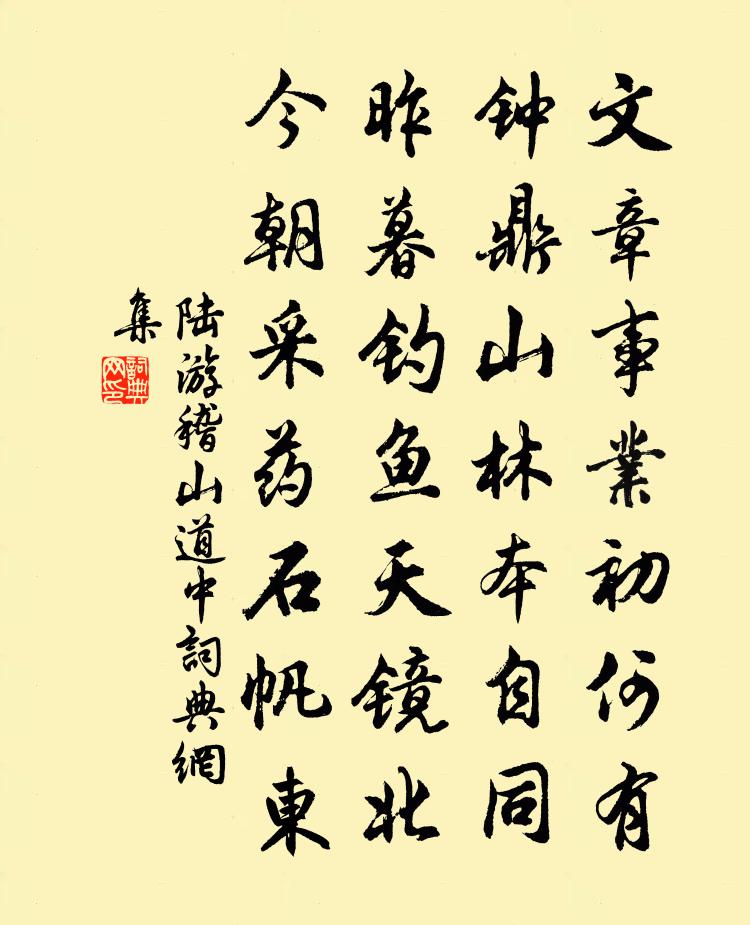 文章事業初何有
钟鼎山林本自同
昨暮钓鱼天镜北
今朝采药石帆東
陆游稽山道中詞典網
集
詞典
网印